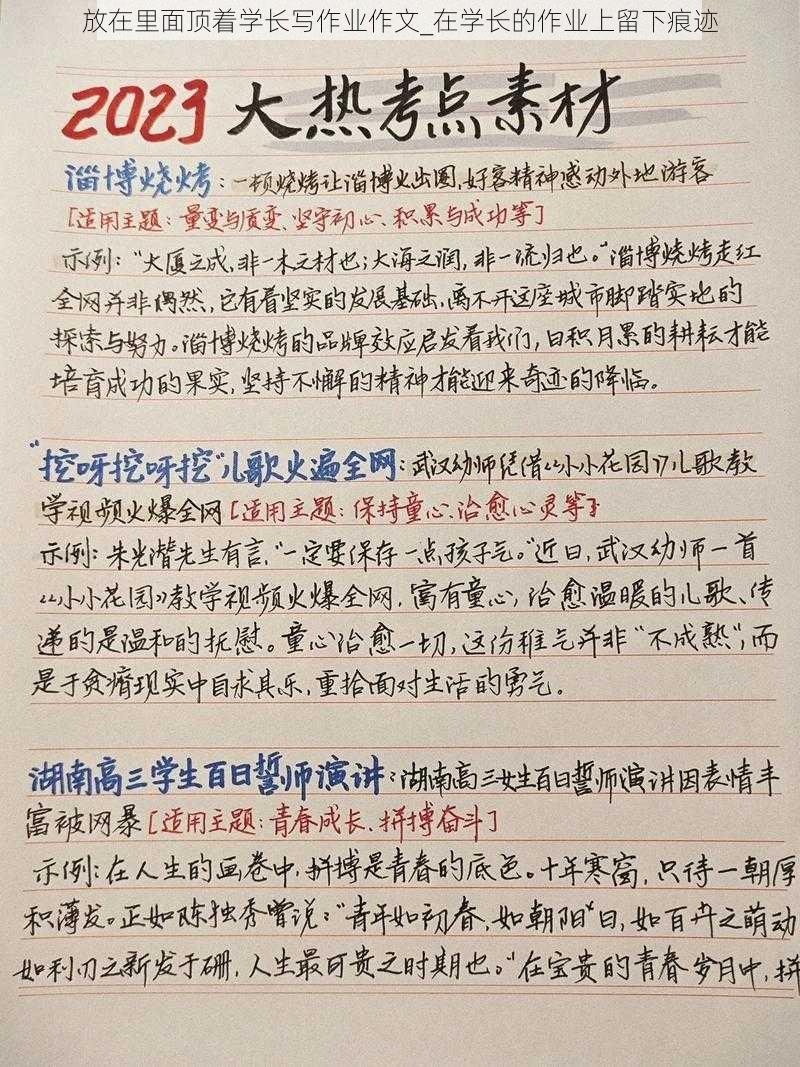 放在里面顶着学长写作业作文_在学长的作业上留下痕迹
2023大热考点素材
淄博烧烤：一顿烧烤让淄博火出圈，好客精神感动外地游客
[适用主题：量变与质变、坚守初心、积累与成功等]
示例：“大厦之成，非一木之材也；大海之润，非一流归也。”淄博烧烤走红
全网并非偶然，它有着坚实的发展基础，离不开这座城市脚踏实地的
探索与努力。淄博烧烤的品牌效应启发着我们，日积月累的耕耘才能
培育成功的果实，坚持不懈的精神才能迎来奇迹的降临。
“挖呀挖呀挖”儿歌火遍全网：武汉幼师凭借《小小花园》儿歌教
学视频火爆全网[适用主题：保持童心、治愈心灵等]
示例：朱光潜先生有言，“一定要保存一点孩子气。”近日，武汉幼师一首
《小小花园》教学视频火爆全网，富有童心，治愈温暖的儿歌、传
递的是温和的抚慰。童心治愈一切，这份稚气并非“不成熟”，而
是于贫瘠现实中自求其乐，重拾面对生活的勇气。
湖南高三学生百日誓师演讲：湖南高三女生百日誓师演讲因表情丰
富被网暴[适用主题：青春成长、拼搏奋斗]
示例：在人生的画卷中，拼搏是青春的底色。十年寒窗，只待一朝厚
积薄发。正如陈独秀曾说：“青年如初春，如朝阳日，如百卉之萌动
如利刃之新发于硎，人生最可贵之时期也。”在宝贵的青春岁月中，拼